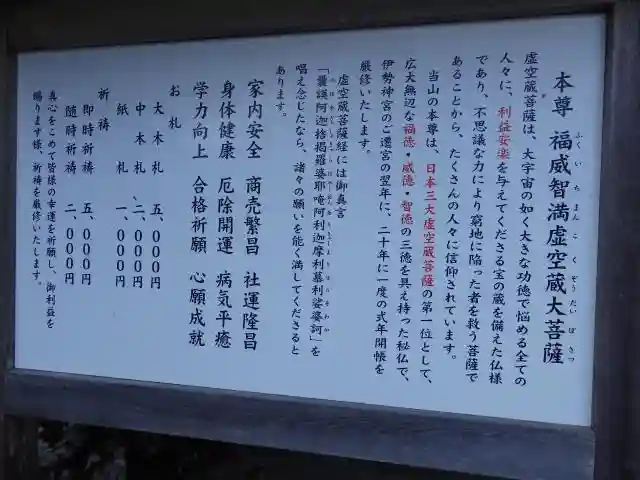 本尊 福威智満虚空蔵大菩薩
ふくいちまんこくぞうだいぼさつ
虚空蔵菩薩は、大宇宙の如く大きな功徳で悩める全ての
人々に、利益安楽を与えてくださる宝の蔵を備えた仏様
であり、不思議な力により窮地に陥った者を救う菩薩で
あることから、たくさんの人々に信仰されています。
当山の本尊は、日本三大虚空蔵菩薩の第一位として、
広大無辺な福徳・威徳・智徳の三徳を具え持った秘仏で、
伊勢神宮のご遷宮の翌年に、二十年に一度の式年開帳を
厳修いたします。
虚空蔵菩薩経には御真言
「曩謨阿迦捨掲羅婆耶唵阿利迦摩利慕利娑婆訶」を
唱え念じたなら、諸々の願いを能く満してくださると
あります。
家内安全 商売繁昌 社運隆昌
身体健康 厄除開運 病気平癒
学力向上 合格祈願 心願成就
お札
大木札 五、〇〇〇円
中木札 二、〇〇〇円
紙札 一、〇〇〇円
祈祷
即時祈祷 五、〇〇〇円
随時祈祷 二、〇〇〇円
真心をこめて皆様の幸運を祈願し、御利益を
賜ります様、祈祷を厳修いたします。